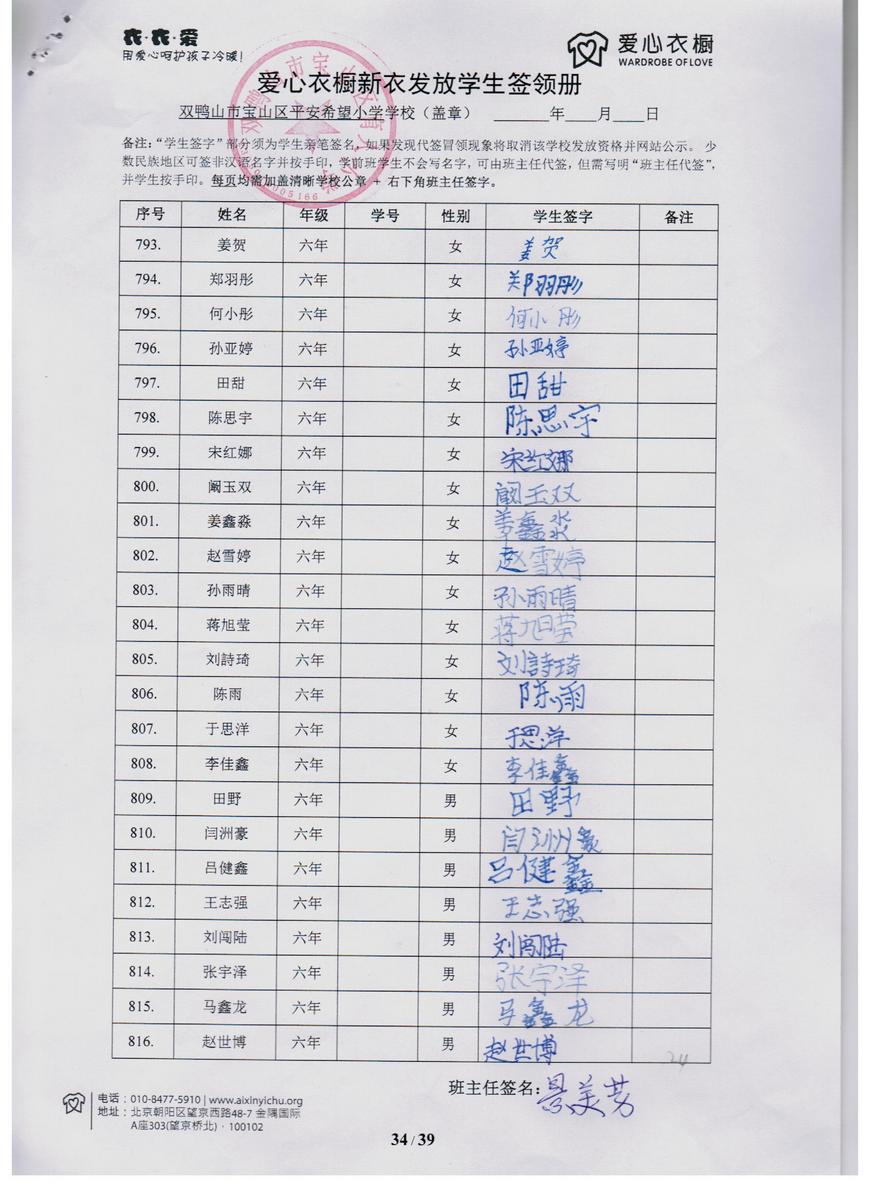 衣·衣·爱
用爱心呵护孩子冷暖!
爱心衣橱
WARDROBE OF LOVE
爱心衣橱新衣发放学生签领册
双鸭山市宝山区平安希望小学学校（盖章） ____年___月___日
备注:“学生签字”部分须为学生亲笔签名,如果发现代签冒领现象将取消该学校发放资格并网站公示。 少
数民族地区可签非汉语名字并按手印,学前班学生不会写名字,可由班主任代签,但需写明“班主任代签”,
并学生按手印。每页均需加盖清晰学校公章 + 右下角班主任签字。
序号 姓名 年级 学号 性别 学生签字 备注
793. 姜贺 六年 女 姜贺
794. 郑羽彤 六年 女 郑羽彤
795. 何小彤 六年 女 何小彤
796. 孙亚婷 六年 女 孙亚婷
797. 田甜 六年 女 田甜
798. 陈思宇 六年 女 陈思宇
799. 宋红娜 六年 女 宋红娜
800. 阚玉双 六年 女 阚玉双
801. 姜鑫淼 六年 女 姜鑫淼
802. 赵雪婷 六年 女 赵雪婷
803. 孙雨晴 六年 女 孙雨晴
804. 蒋旭莹 六年 女 蒋旭莹
805. 刘詩琦 六年 女 刘詩琦
806. 陈雨 六年 女 陈雨
807. 于思洋 六年 女 于思洋
808. 李佳鑫 六年 女 李佳鑫
809. 田野 六年 男 田野
810. 闫洲豪 六年 男 闫洲豪
811. 吕健鑫 六年 男 吕健鑫
812. 王志强 六年 男 王志强
813. 刘闯陆 六年 男 刘闯陆
814. 张宇泽 六年 男 张宇泽
815. 马鑫龙 六年 男 马鑫龙
816. 赵世博 六年 男 赵世博
24
班主任签名: 景美芳
电话：010-8477-5910 | www.aixinyichu.org
地址：北京朝阳区望京西路48-7 金隅国际
A座303(望京桥北)·100102
34 / 39